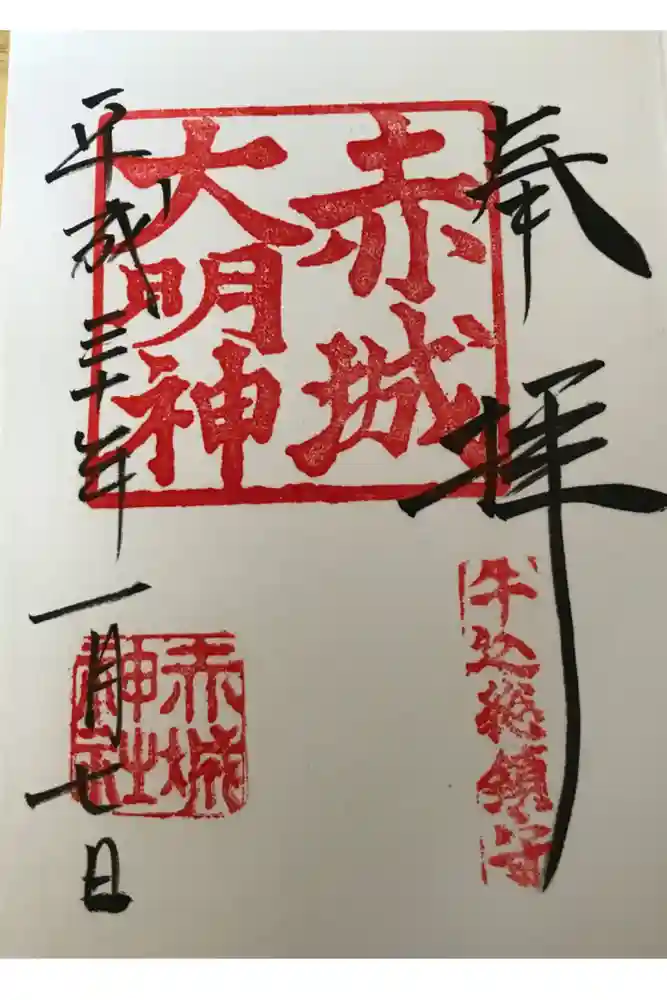 奉拝
赤城
大明神
牛込総鎮守
平成三十年一月七日
赤城
神社